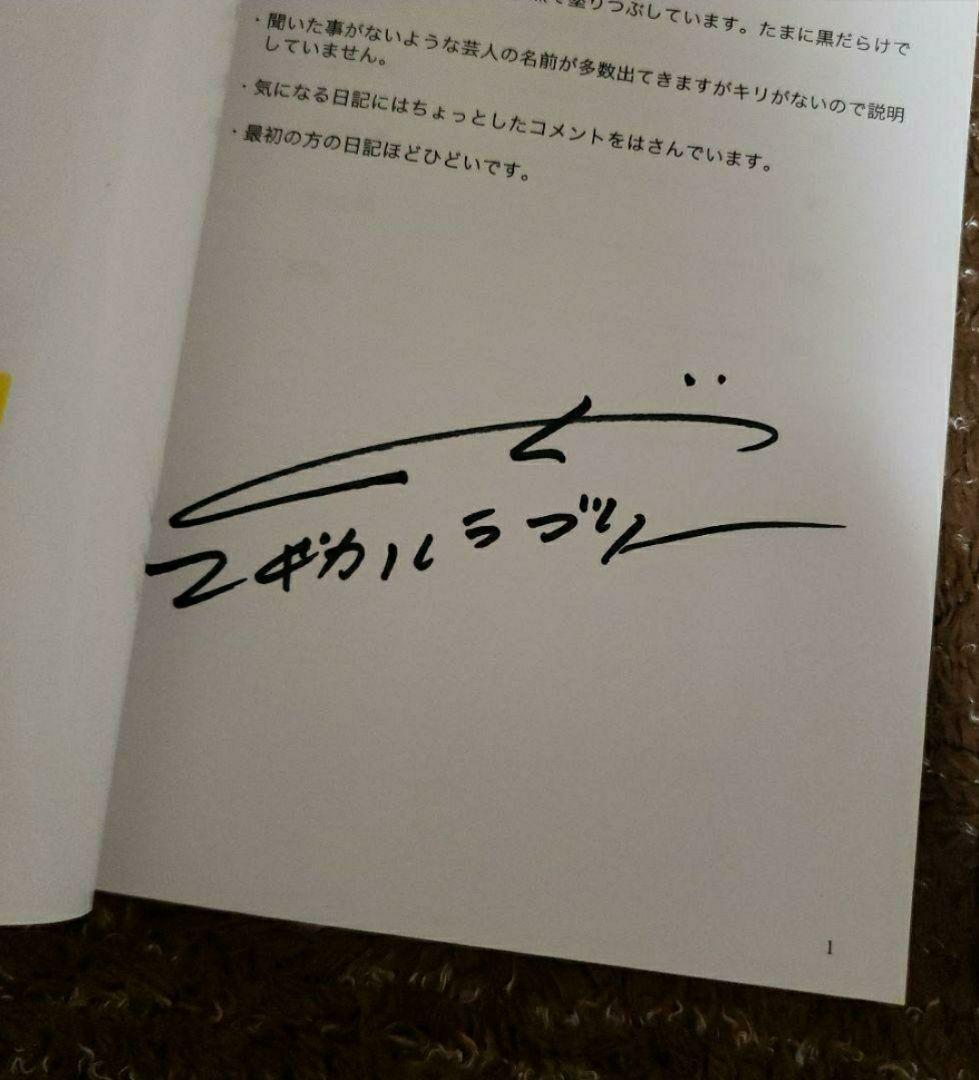 で塗りつぶしています。たまに黒だらけで
・聞いた事がないような芸人の名前が多数出てきますがキリがないので説明
していません。
・気になる日記にはちょっとしたコメントをはさんでいます。
・最初の方の日記ほどひどいです。
マヂカルラブリー
1